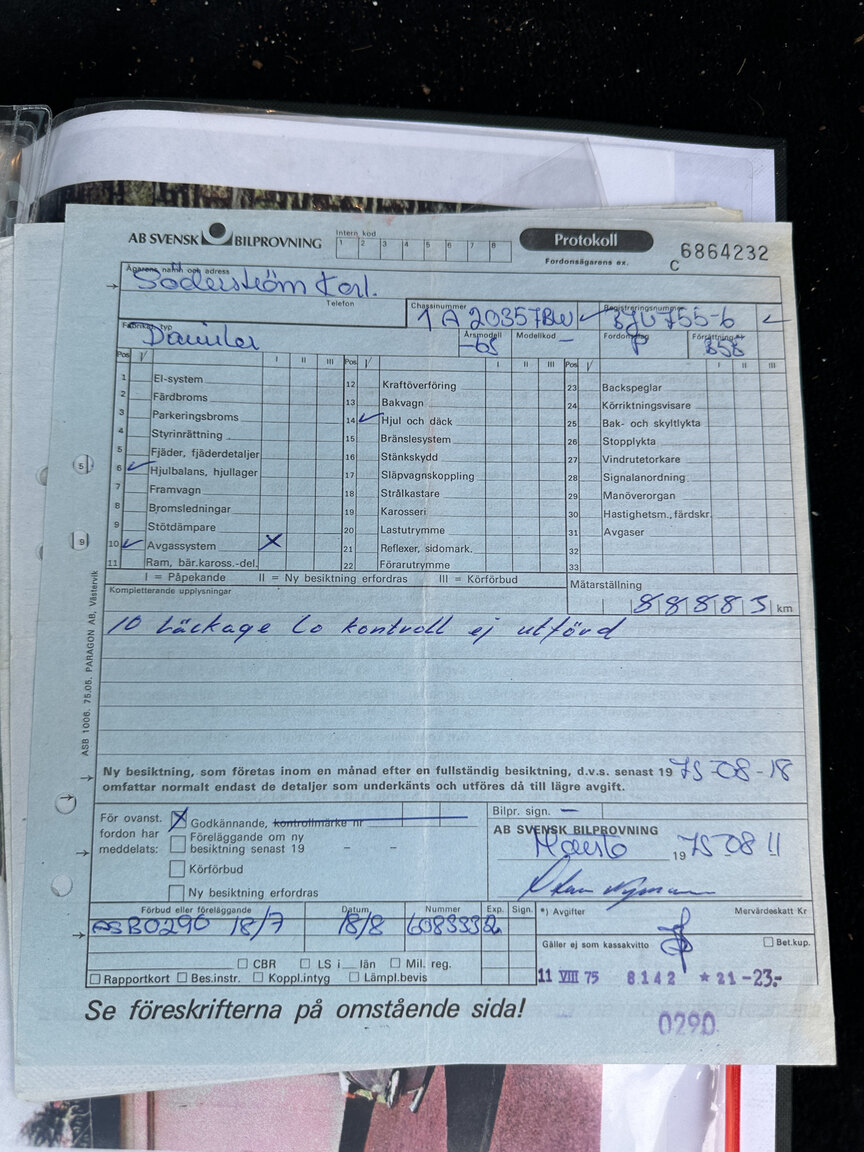 AB SVENSK BILPROVNING
Intern kod
1 2 3 4 5 6 7 8
Protokoll
Fordonsägarens ex.
C 6864232
Ägarens namn och adress
Söderström Karl.
Telefon
Chassinummer
1 A 20357BW
Registreringsnummer
BJU755-6
Fabrikat, typ
Daimler
Årsmodell
-65
Modellkod
–
Fordonsslag
P
858
Pos V I II III Pos V I II III Pos V I II III
1 El-system 12 Kraftöverföring 23 Backspeglar
2 Färdbroms 13 Bakvagn 24 Körriktningsvisare
3 Parkeringsbroms 14 Hjul och däck 25 Bak- och skyltlykta
4 Styrinrättning 15 Bränslesystem 26 Stopplykta
5 Fjäder, fjäderdetaljer 16 Stänkskydd 27 Vindrutetorkare
6 Hjulbalans, hjullager 17 Släpvagnskoppling 28 Signalanordning
7 Framvagn 18 Strålkastare 29 Manöverorgan
8 Bromsledningar 19 Karosseri 30 Hastighetsm., färdskr.
9 Stötdämpare 20 Lastutrymme 31 Avgaser
10 Avgassystem X 21 Reflexer, sidomark. 32
11 Ram, bär.kaross.-del. 22 Förarutrymme 33
I = Påpekande II = Ny besiktning erfordras III = Körförbud
Mätarställning
88883 km
Kompletterande upplysningar
10 Läckage Co kontroll ej utförd
5
9
ASB 1006. 75.05. PARAGON AB, Västervik
Ny besiktning, som företas inom en månad efter en fullständig besiktning, d.v.s. senast 19 75-08-18
omfattar normalt endast de detaljer som underkänts och utföres då till lägre avgift.
För ovanst. fordon har meddelats:
X Godkännande, kontrollmärke nr
Föreläggande om ny
besiktning senast 19 – –
Körförbud
Ny besiktning erfordras
Bilpr. sign. –
AB SVENSK BILPROVNING
19 75 08 11
Förbud eller föreläggande Datum Nummer Exp. Sign.
ASB0290 18/7 18/8 6083332
*) Avgifter Mervärdeskatt Kr
Gäller ej som kassakvitto
Bet.kup.
CBR LS i län Mil. reg.
Rapportkort Bes.instr. Koppl.intyg Lämpl.bevis
11 VIII 75 8142 * 21 -23.-
Se föreskrifterna på omstående sida!
0290